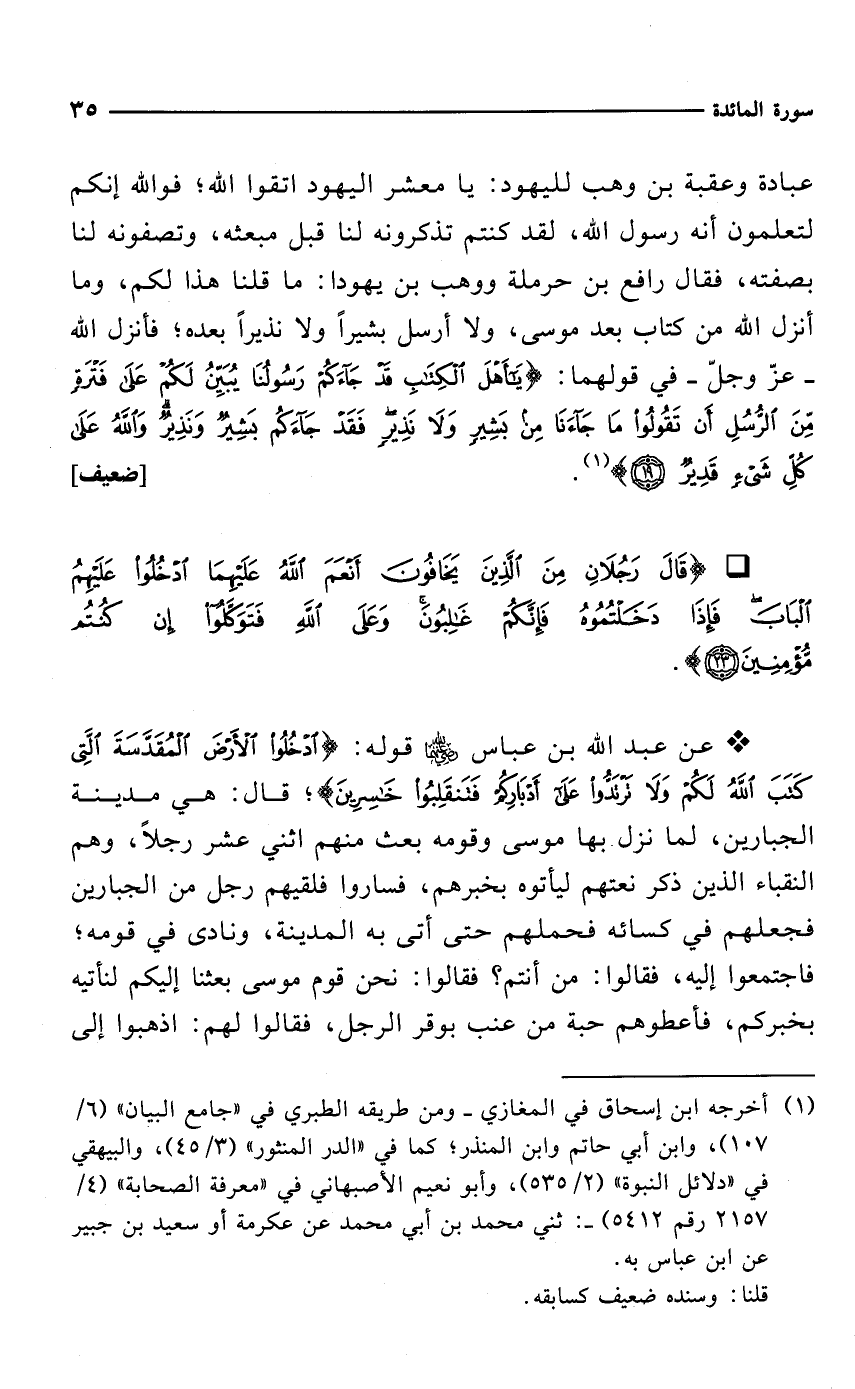 سورة المائدة ٣٥
عبادة وعقبة بن وهب لليهود: يا معشر اليهود اتقوا الله؛ فوالله إنكم
لتعلمون أنه رسول الله، لقد كنتم تذكرونه لنا قبل مبعثه، وتصفونه لنا
بصفته، فقال رافع بن حرملة ووهب بن يهودا: ما قلنا هذا لكم، وما
أنزل الله من كتاب بعد موسى، ولا أرسل بشيراً ولا نذيراً بعده؛ فأنزل الله
ـ عزّ وجلّ ـ في قولهما: ﴿يَٰٓأَهۡلَ ٱلۡكِتَٰبِ قَدۡ جَآءَكُمۡ رَسُولُنَا يُبَيِّنُ لَكُمۡ عَلَىٰ فَتۡرَةٖ
مِّنَ ٱلرُّسُلِ أَن تَقُولُواْ مَا جَآءَنَا مِنۢ بَشِيرٖ وَلَا نَذِيرٖۖ فَقَدۡ جَآءَكُم بَشِيرٞ وَنَذِيرٞۗ وَٱللَّهُ عَلَىٰ
كُلِّ شَيۡءٖ قَدِيرٞ ١٩﴾(١). [ضعيف]
❑ ﴿قَالَ رَجُلَانِ مِنَ ٱلَّذِينَ يَخَافُونَ أَنۡعَمَ ٱللَّهُ عَلَيۡهِمَا ٱدۡخُلُواْ عَلَيۡهِمُ
ٱلۡبَابَۖ فَإِذَا دَخَلۡتُمُوهُ فَإِنَّكُمۡ غَٰلِبُونَۚ وَعَلَى ٱللَّهِ فَتَوَكَّلُوٓاْ إِن كُنتُم
مُّؤۡمِنِينَ ٢٣﴾.
❖ عن عبد الله بن عباس رضي الله عنهما قوله: ﴿ٱدۡخُلُواْ ٱلۡأَرۡضَ ٱلۡمُقَدَّسَةَ ٱلَّتِي
كَتَبَ ٱللَّهُ لَكُمۡ وَلَا تَرۡتَدُّواْ عَلَىٰٓ أَدۡبَارِكُمۡ فَتَنقَلِبُواْ خَٰسِرِينَ﴾؛ قال: هي مدينة
الجبارين، لما نزل بها موسى وقومه بعث منهم اثني عشر رجلاً، وهم
النقباء الذين ذكر نعتهم ليأتوه بخبرهم، فساروا فلقيهم رجل من الجبارين
فجعلهم في كسائه فحملهم حتى أتى به المدينة، ونادى في قومه؛
فاجتمعوا إليه، فقالوا: من أنتم؟ فقالوا: نحن قوم موسى بعثنا إليكم لنأتيه
بخبركم، فأعطوهم حبة من عنب بوقر الرجل، فقالوا لهم: اذهبوا إلى
(١) أخرجه ابن إسحاق في المغازي ـ ومن طريقه الطبري في «جامع البيان» (٦/
١٠٧)، وابن أبي حاتم وابن المنذر؛ كما في «الدر المنثور» (٣/ ٤٥)، والبيهقي
في «دلائل النبوة» (٢/ ٥٣٥)، وأبو نعيم الأصبهاني في «معرفة الصحابة» (٤/
٢١٥٧ رقم ٥٤١٢) ـ: ثني محمد بن أبي محمد عن عكرمة أو سعيد بن جبير
عن ابن عباس به.
قلنا: وسنده ضعيف كسابقه.